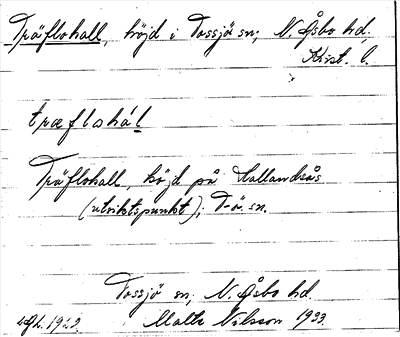 Träflohall, höjd i Tossjö sn; N. Åsbo hd,
Krist. l.
træflohál
Träflohall, höjd på Hallandsås
(utsiktspunkt); T-ö. sn.
Tossjö sn, N. Åsbo hd.
1923. Malte Nilsson 1933.